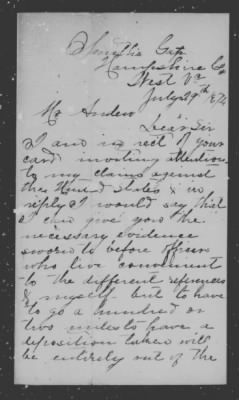 Hampshire Co
West Va
July 29th 1874
Mr
Dear Sir
I am in rect of your
card inviting attention
to my claims against
the United States & in
reply I would say that
I can give you the
necessary evidence
sworn to before officers
who live convenient
to the different references
& myself. but to have
to go a hundred or
two miles to have a
deposition taken will
be entirely out of the